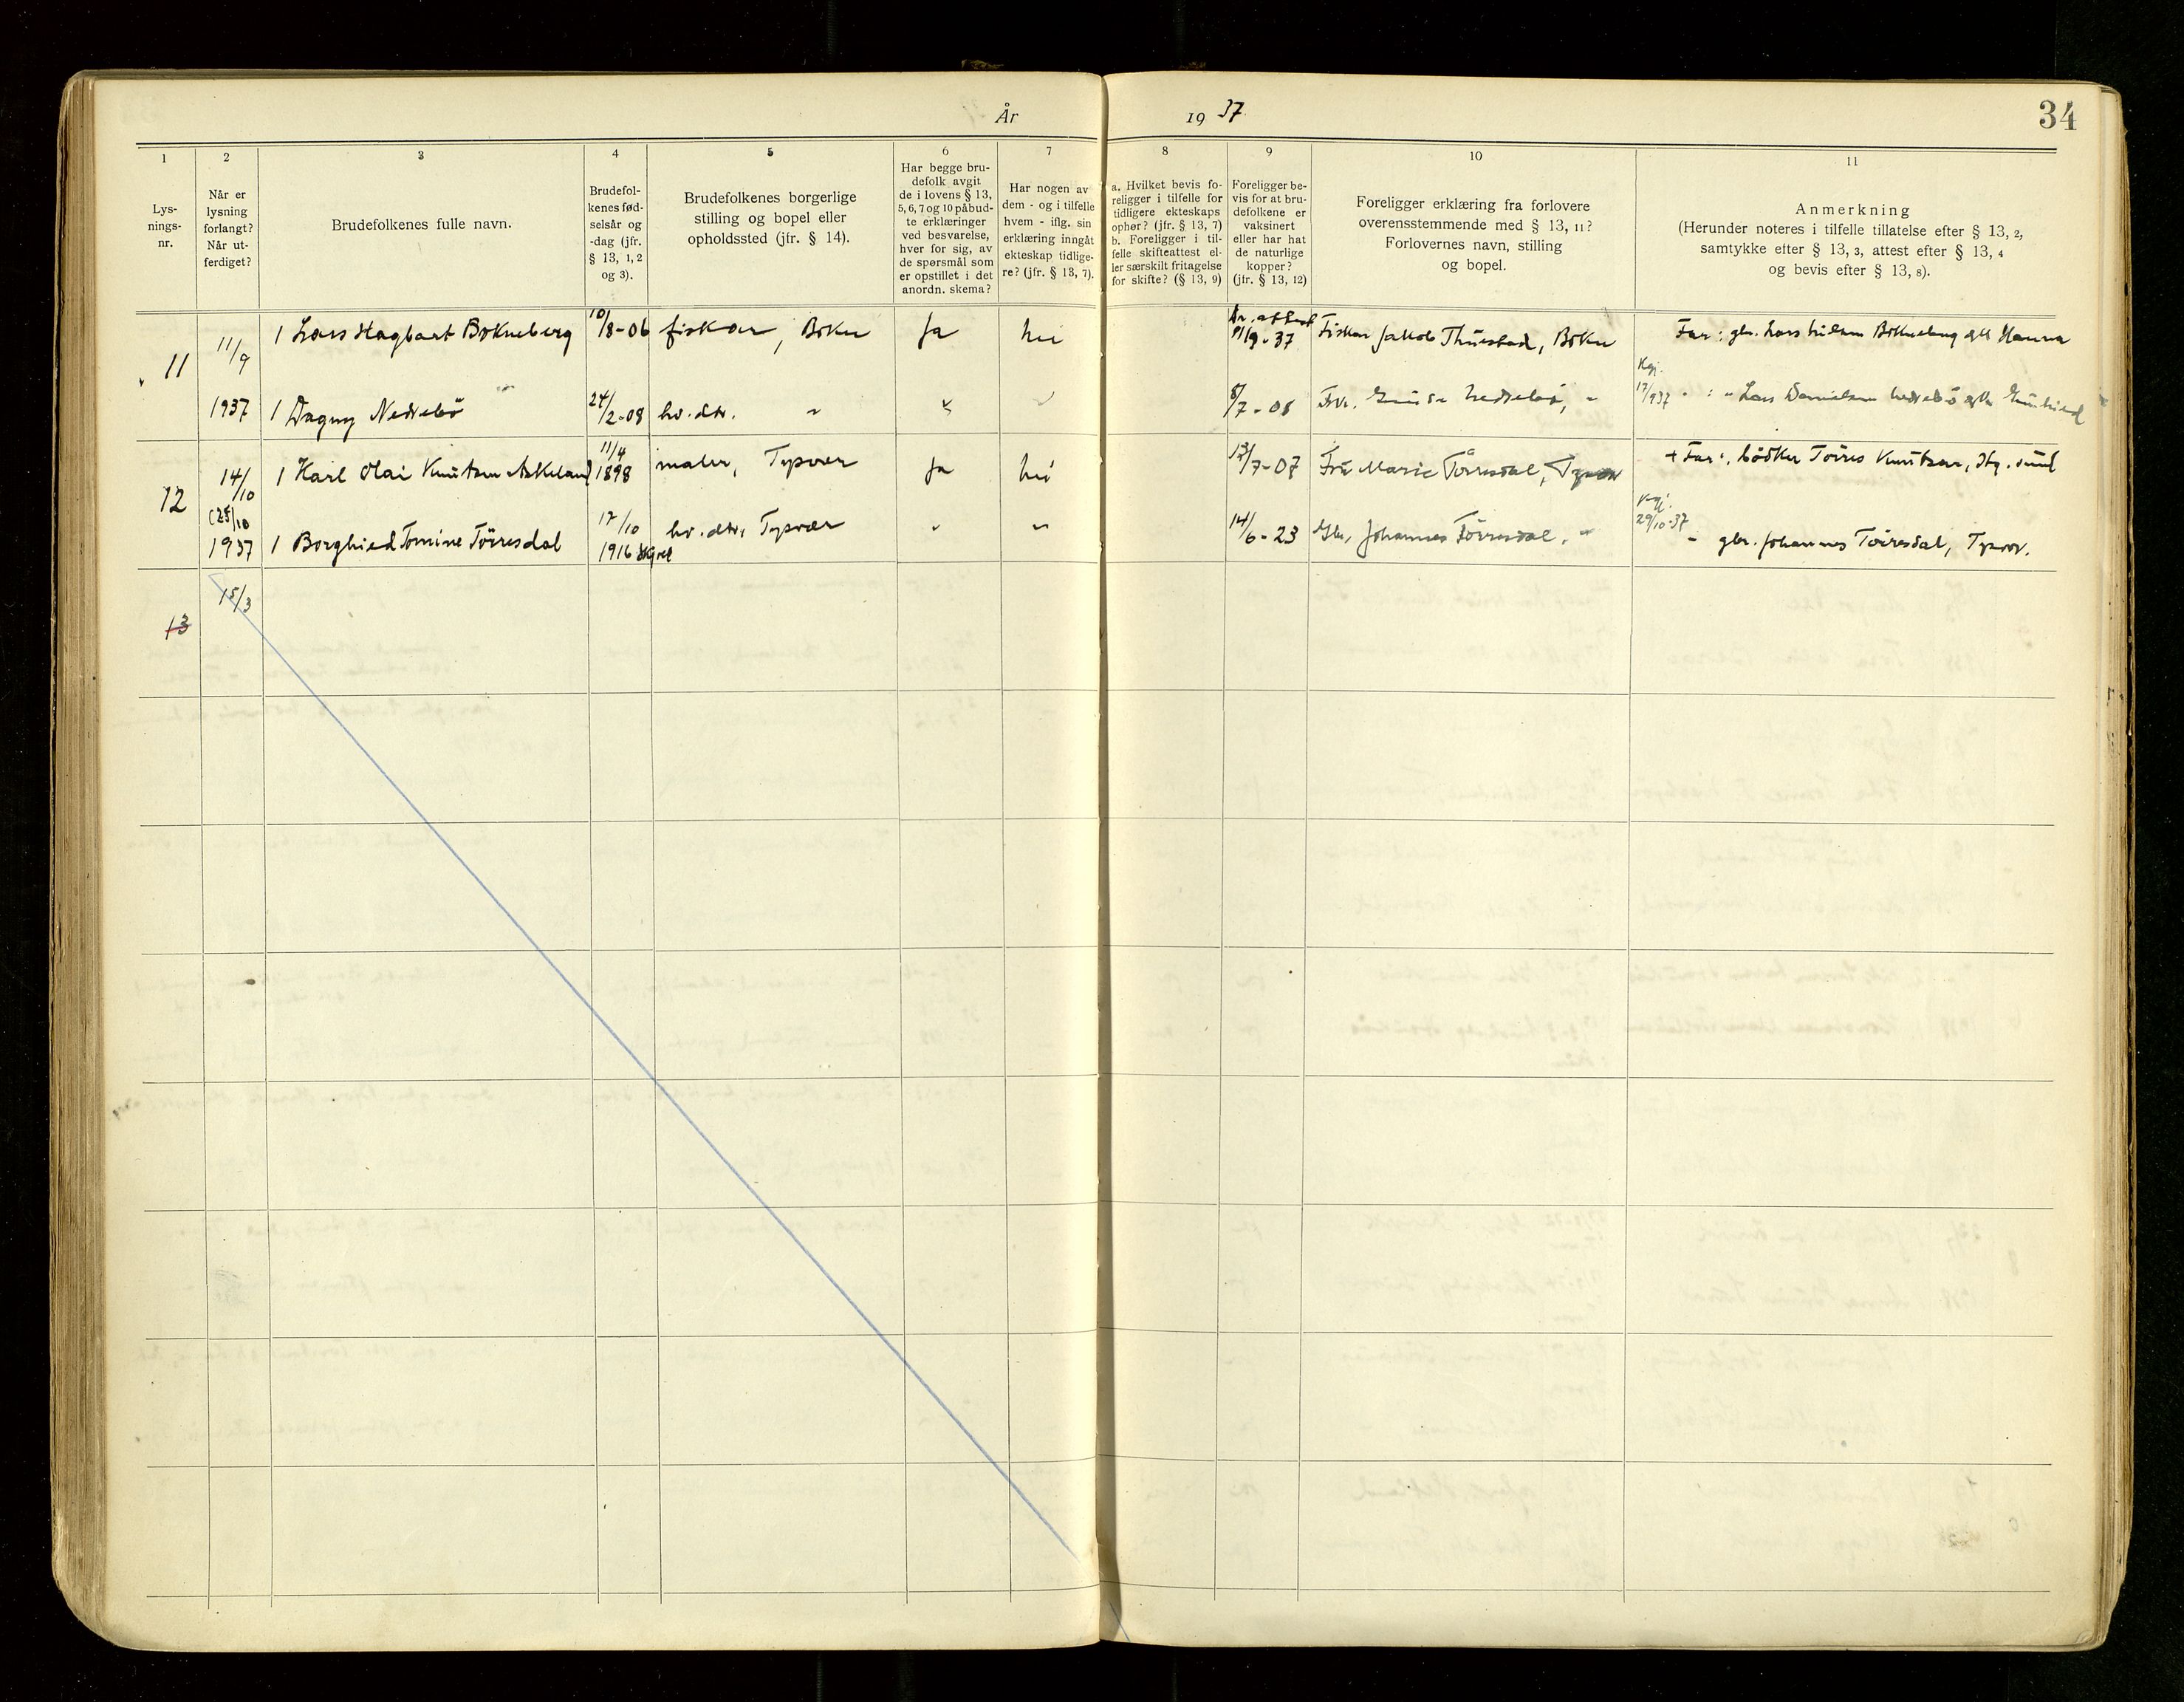 År 19 37
34
1
Lys-
nings-
nr.
2
Når er
lysning
forlangt?
Når ut-
ferdiget?
3
Brudefolkenes fulle navn.
4
Brudefol-
kenes fød-
selsår og
-dag (jfr.
§ 13, 1, 2
og 3).
5
Brudefolkenes borgerlige
stilling og bopel eller
opholdssted (jfr. § 14).
6
Har begge bru-
defolk avgit
de i lovens § 13,
5, 6, 7 og 10 påbud-
te erklæringer
ved besvarelse,
hver for sig, av
de spørsmål som
er opstillet i det
anordn. skema?
7
Har nogen av
dem - og i tilfelle
hvem - iflg. sin
erklæring inngått
ekteskap tidlige-
re? (jfr. § 13, 7).
8
a. Hvilket bevis fo-
religger i tilfelle for
tidligere ekteskaps
ophør? (jfr. § 13, 7)
b. Foreligger i til-
felle skifteattest el-
ler særskilt fritagelse
for skifte? (§ 13, 9)
9
Foreligger be-
vis for at bru-
defolkene er
vaksinert
eller har hat
de naturlige
kopper?
(jfr. § 13, 12)
10
Foreligger erklæring fra forlovere
overensstemmende med § 13, 11?
Forlovernes navn, stilling
og bopel.
11
Anmerkning
(Herunder noteres i tilfelle tillatelse efter § 13, 2,
samtykke efter § 13, 3, attest efter § 13, 4
og bevis efter § 13, 8).
11
11/9
1937
1 Lars Hagbart Bokneberg
10/8-06
fisker, Bokn
Ja
nei
11/9-37
Fisker Jakob Thuestad, Bokn
Far: gbr. Lars Bokneberg
1 Dagny Nedrebö
24/2-08
hv. dtr. "
"
"
8/7-08
Nedrebö, "
Kgj.
17/937
" : " Lars Danielsen Nedrebö
12
14/10
(25/10
1937
1 Karl Olai Knutsen Askeland
11/4
1898
maler, Tysvær
Ja
nei
13/7-07
Fru Marie Tørresdal, Tysvær
+ Far: bödker Törres Knutsen,
1 Borghild Tomine Törresdal
17/10
1916
hv. dtr, Tysvær
"
"
14/6-23
Gbr. Johannes Törresdal, "
Kgj.
29/10-37
" gbr. Johannes Törresdal, Tysvær.
13
15/3